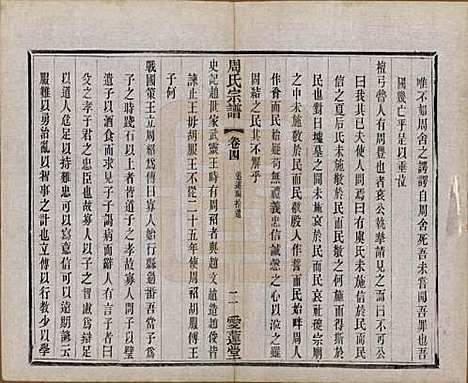 唯不如周舍之諤諤自周舍死吾未嘗聞吾罪也吾
國幾亡乎是以垂泣
檀弓魯人有周豐也者哀公執摯請見之而曰不可公
曰我其已夫使人問焉曰有虞氏未施信於民而民
信之夏后氏未施敬於民而民敬之何施而得斯於
民也對曰墟墓之間未施哀於民而民哀社稷宗廟
之中未施敬於民而民敬殷人作誓而民始畔周人
作會而民始疑苟無禮義忠信誠慤之心以涖之雖
固結之民其不解乎
史記趙世家武靈王時有周紹者與趙文趙造趙俊皆
諫止王毋胡服王不從二十五年使周紹胡服傅王
子何
周氏宗譜
卷四
二
愛蓮堂
戰國策王立周紹為傅曰寡人始行縣過番吾當子為
子之時踐石以上者皆道子之孝故寡人問子以璧
遺子以酒食而求見子子謁病而辭人有言子者曰
父之孝子君之忠臣也故寡人以子之智慮為辯足
以道人危足以持難忠可以寫意信可以遠期諺云
服難以勇治亂以智事之計也立傅以行教少以學